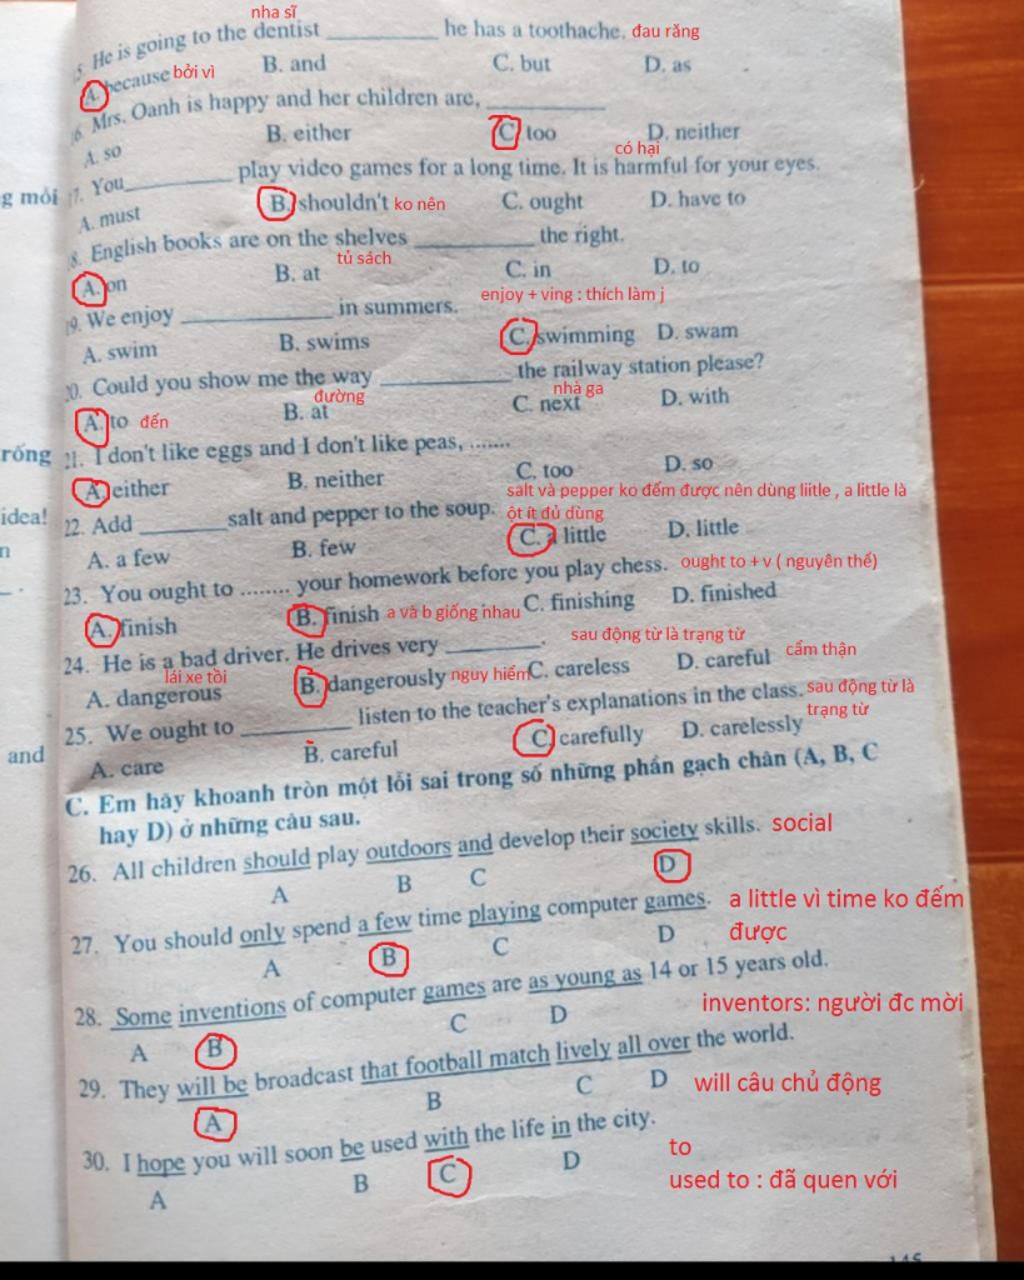 nha sĩ
5. He is going to the dentist ________ he has a toothache. đau răng
A. because bởi vì B. and C. but D. as
16. Mrs. Oanh is happy and her children are, ________
A. so B. either C. too D. neither
có hại
17. You ________ play video games for a long time. It is harmful for your eyes.
g mỗi
A. must B. shouldn't ko nên C. ought D. have to
8. English books are on the shelves ________ the right.
tủ sách
A. on B. at C. in D. to
enjoy + ving : thích làm j
19. We enjoy ________ in summers.
A. swim B. swims C. swimming D. swam
20. Could you show me the way ________ the railway station please?
đường nhà ga
A. to đến B. at C. next D. with
rống
21. I don't like eggs and I don't like peas, .......
A. either B. neither C. too D. so
salt và pepper ko đếm được nên dùng liitle , a little là
ột ít đủ dùng
idea!
22. Add ________ salt and pepper to the soup.
n
A. a few B. few C. a little D. little
23. You ought to ........ your homework before you play chess. ought to + v ( nguyên thể)
A. finish B. finish a và b giống nhau C. finishing D. finished
sau động từ là trạng từ
24. He is a bad driver. He drives very ________.
lái xe tồi
A. dangerous B. dangerously nguy hiểm C. careless D. careful cẩm thận
25. We ought to ________ listen to the teacher's explanations in the class. sau động từ là
trạng từ
and
A. care B. careful C. carefully D. carelessly
C. Em hãy khoanh tròn một lỗi sai trong số những phần gạch chân (A, B, C
hay D) ở những câu sau.
26. All children should play outdoors and develop their society skills. social
A B C D
27. You should only spend a few time playing computer games. a little vì time ko đếm
được
A B C D
28. Some inventions of computer games are as young as 14 or 15 years old.
inventors: người đc mời
A B C D
29. They will be broadcast that football match lively all over the world.
will câu chủ động
A B C D
30. I hope you will soon be used with the life in the city.
to
A B C D
used to : đã quen với